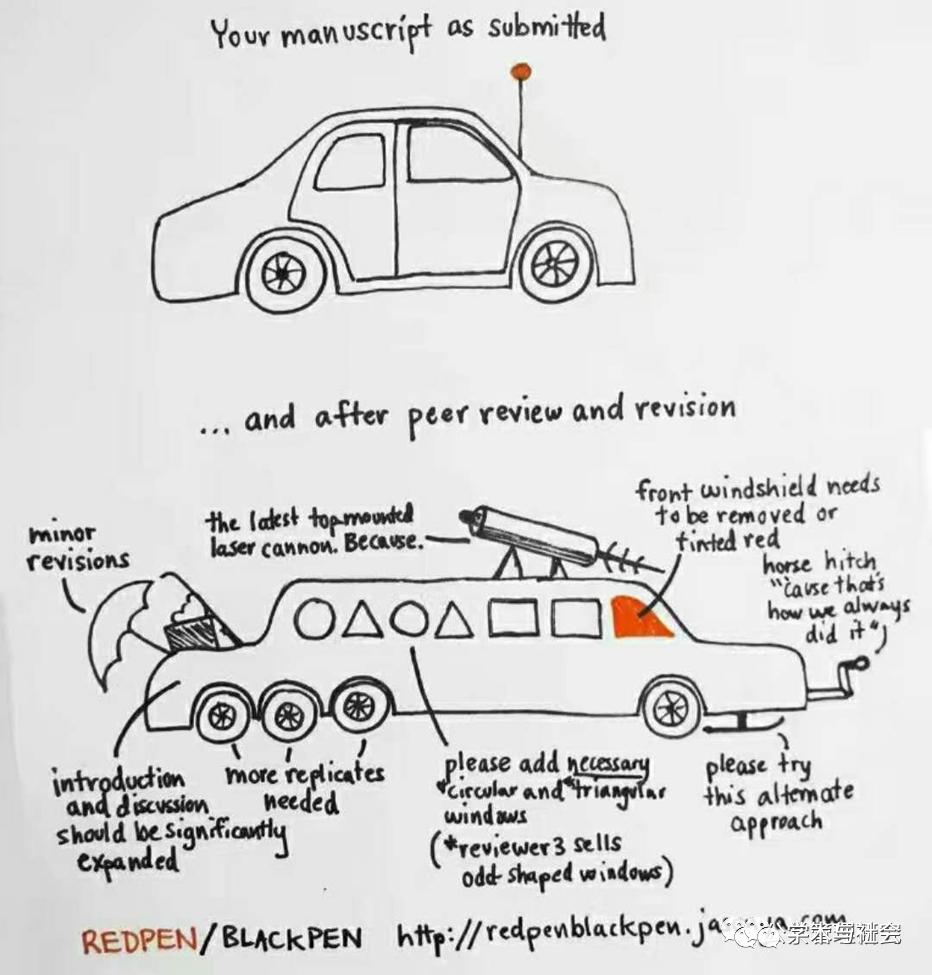 Your manuscript as submitted
... and after peer review and revision
minor
revisions
the latest top mounted
laser cannon. Because.
front windshield needs
to be removed or
tinted red
horse hitch
"cause that's
how we always
did it"
introduction
and discussion
should be significantly
expanded
more replicates
needed
please add necessary
*circular and *triangular
windows
(*reviewer 3 sells
odd shaped windows)
please try
this alternate
approach
REDPEN/BLACKPEN http://redpenblackpen.